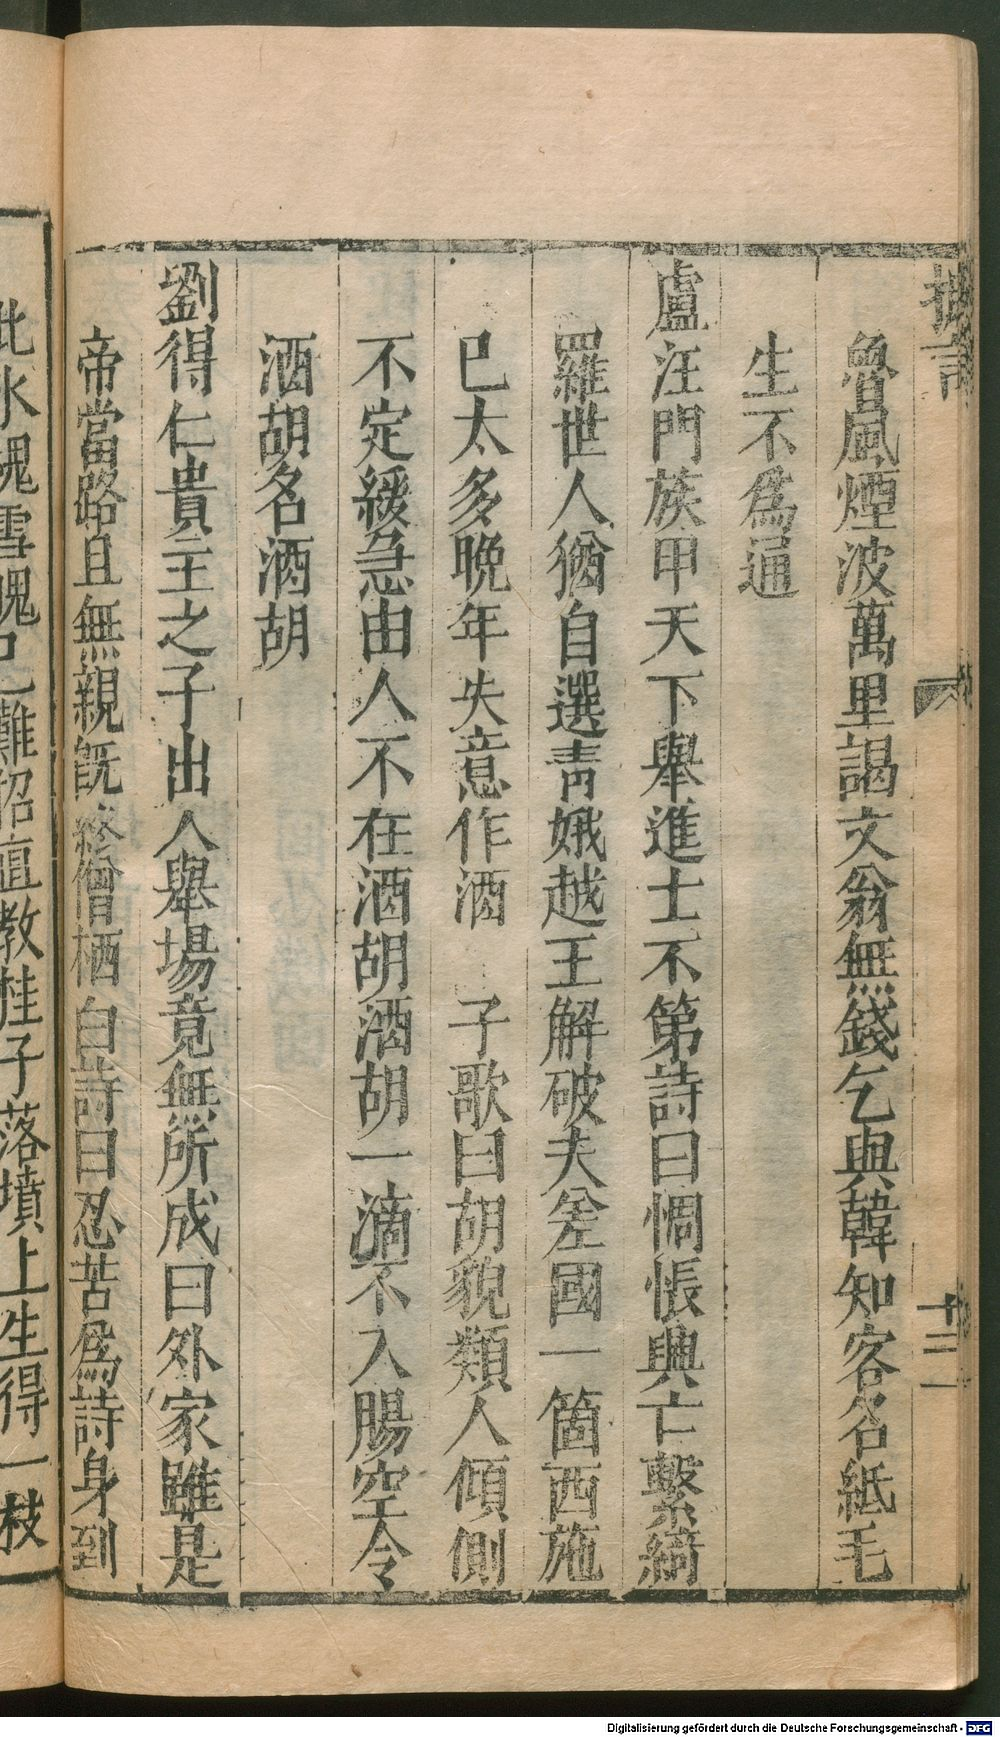 摭言
十二
魯風煙波萬里謁文翁無錢乞與韓知客名紙毛
生不爲通
盧汪門族甲天下舉進士不第詩曰惆悵興亡繫綺
羅世人猶自選青娥越王解破夫差國一箇西施
已太多晚年失意作酒 子歌曰胡貌類人傾側
不定緩急由人不在酒胡酒胡一滴不入腸空令
酒胡名酒胡
劉得仁貴主之子出入舉場竟無所成曰外家雖是
帝當路且無親旣終僧栖白詩曰忍苦爲詩身到
此氷魂雪魄已難招直教桂子落墳上生得一枝
Digitalisierung gefördert durch die Deutsche Forschungsgemeinschaft - DFG